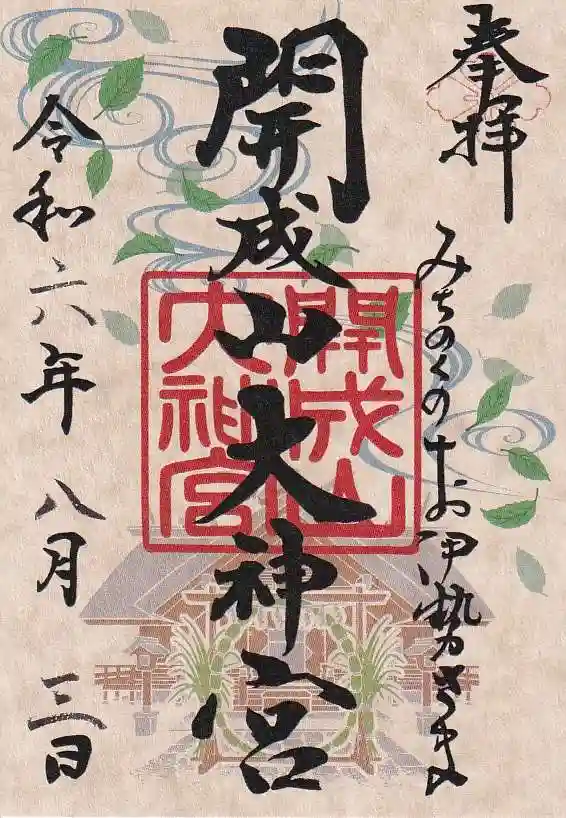 奉拝
みちのくのお伊勢さま
開成山大神宮
開成山
大神宮
令和六年八月三日